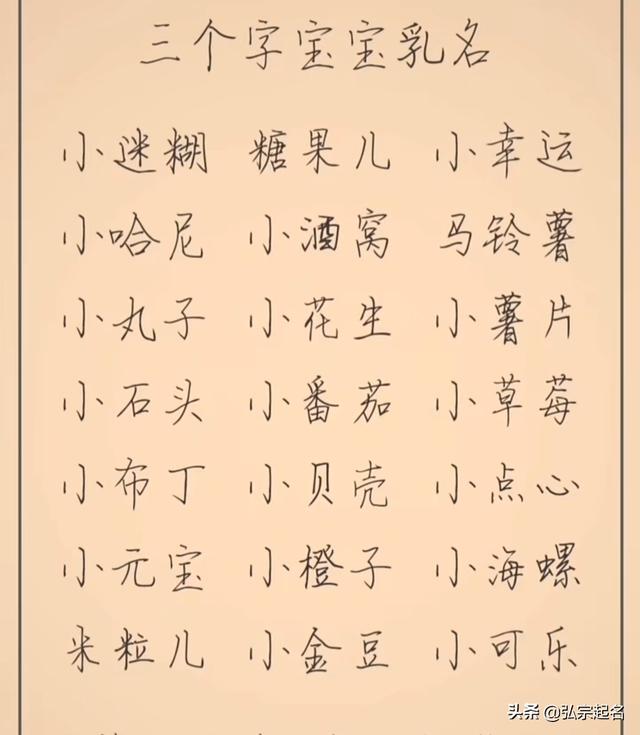 三个字宝宝乳名
小迷糊 糖果儿 小幸运
小哈尼 小酒窝 马铃薯
小丸子 小花生 小薯片
小石头 小番茄 小草莓
小布丁 小贝壳 小点心
小元宝 小橙子 小海螺
米粒儿 小金豆 小可乐
头条 @弘宗起名